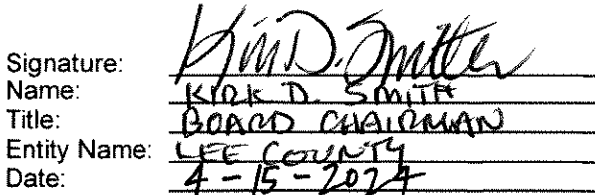 Signature: Kirk D. Smith
Name: KIRK D. SMITH
Title: BOARD CHAIRMAN
Entity Name: LEE COUNTY
Date: 4-15-2024